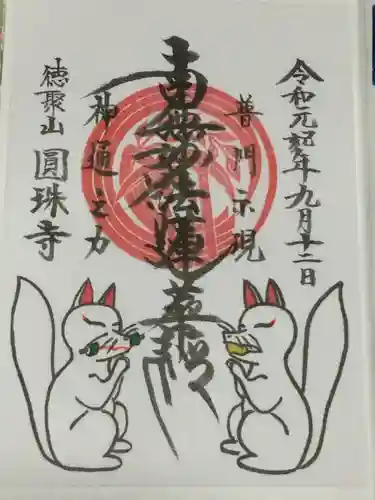 令和元年九月十二日
普門示現
南無妙法蓮華経
神通之力
徳聚山
圓珠寺